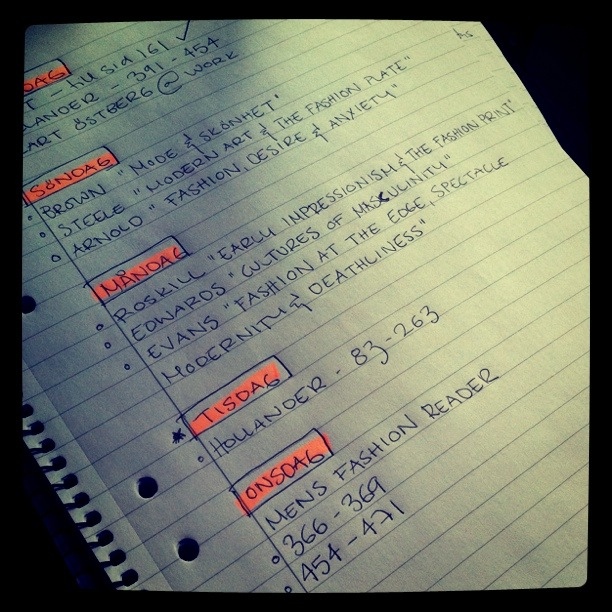 DAG
T - till sid 161 ✓
LANDER - 391 - 454
ART ÖSTBERG @ WORK
SÖNDAG
◦ BROWN "MODE & SKÖNHET"
◦ STEELE "MODERN ART & THE FASHION PLATE"
◦ ARNOLD "FASHION, DESIRE & ANXIETY"
MÅNDAG
◦ ROSKILL "EARLY IMPRESSIONISM & THE FASHION PRINT"
◦ EDWARDS "CULTURES OF MASCULINITY"
◦ EVANS "FASHION AT THE EDGE, SPECTACLE
MODERNITY & DEATHLINESS"
* TISDAG
◦ HOLLANDER - 83-263
ONSDAG
MENS FASHION READER
◦ 366 - 369
◦ 454 - 471